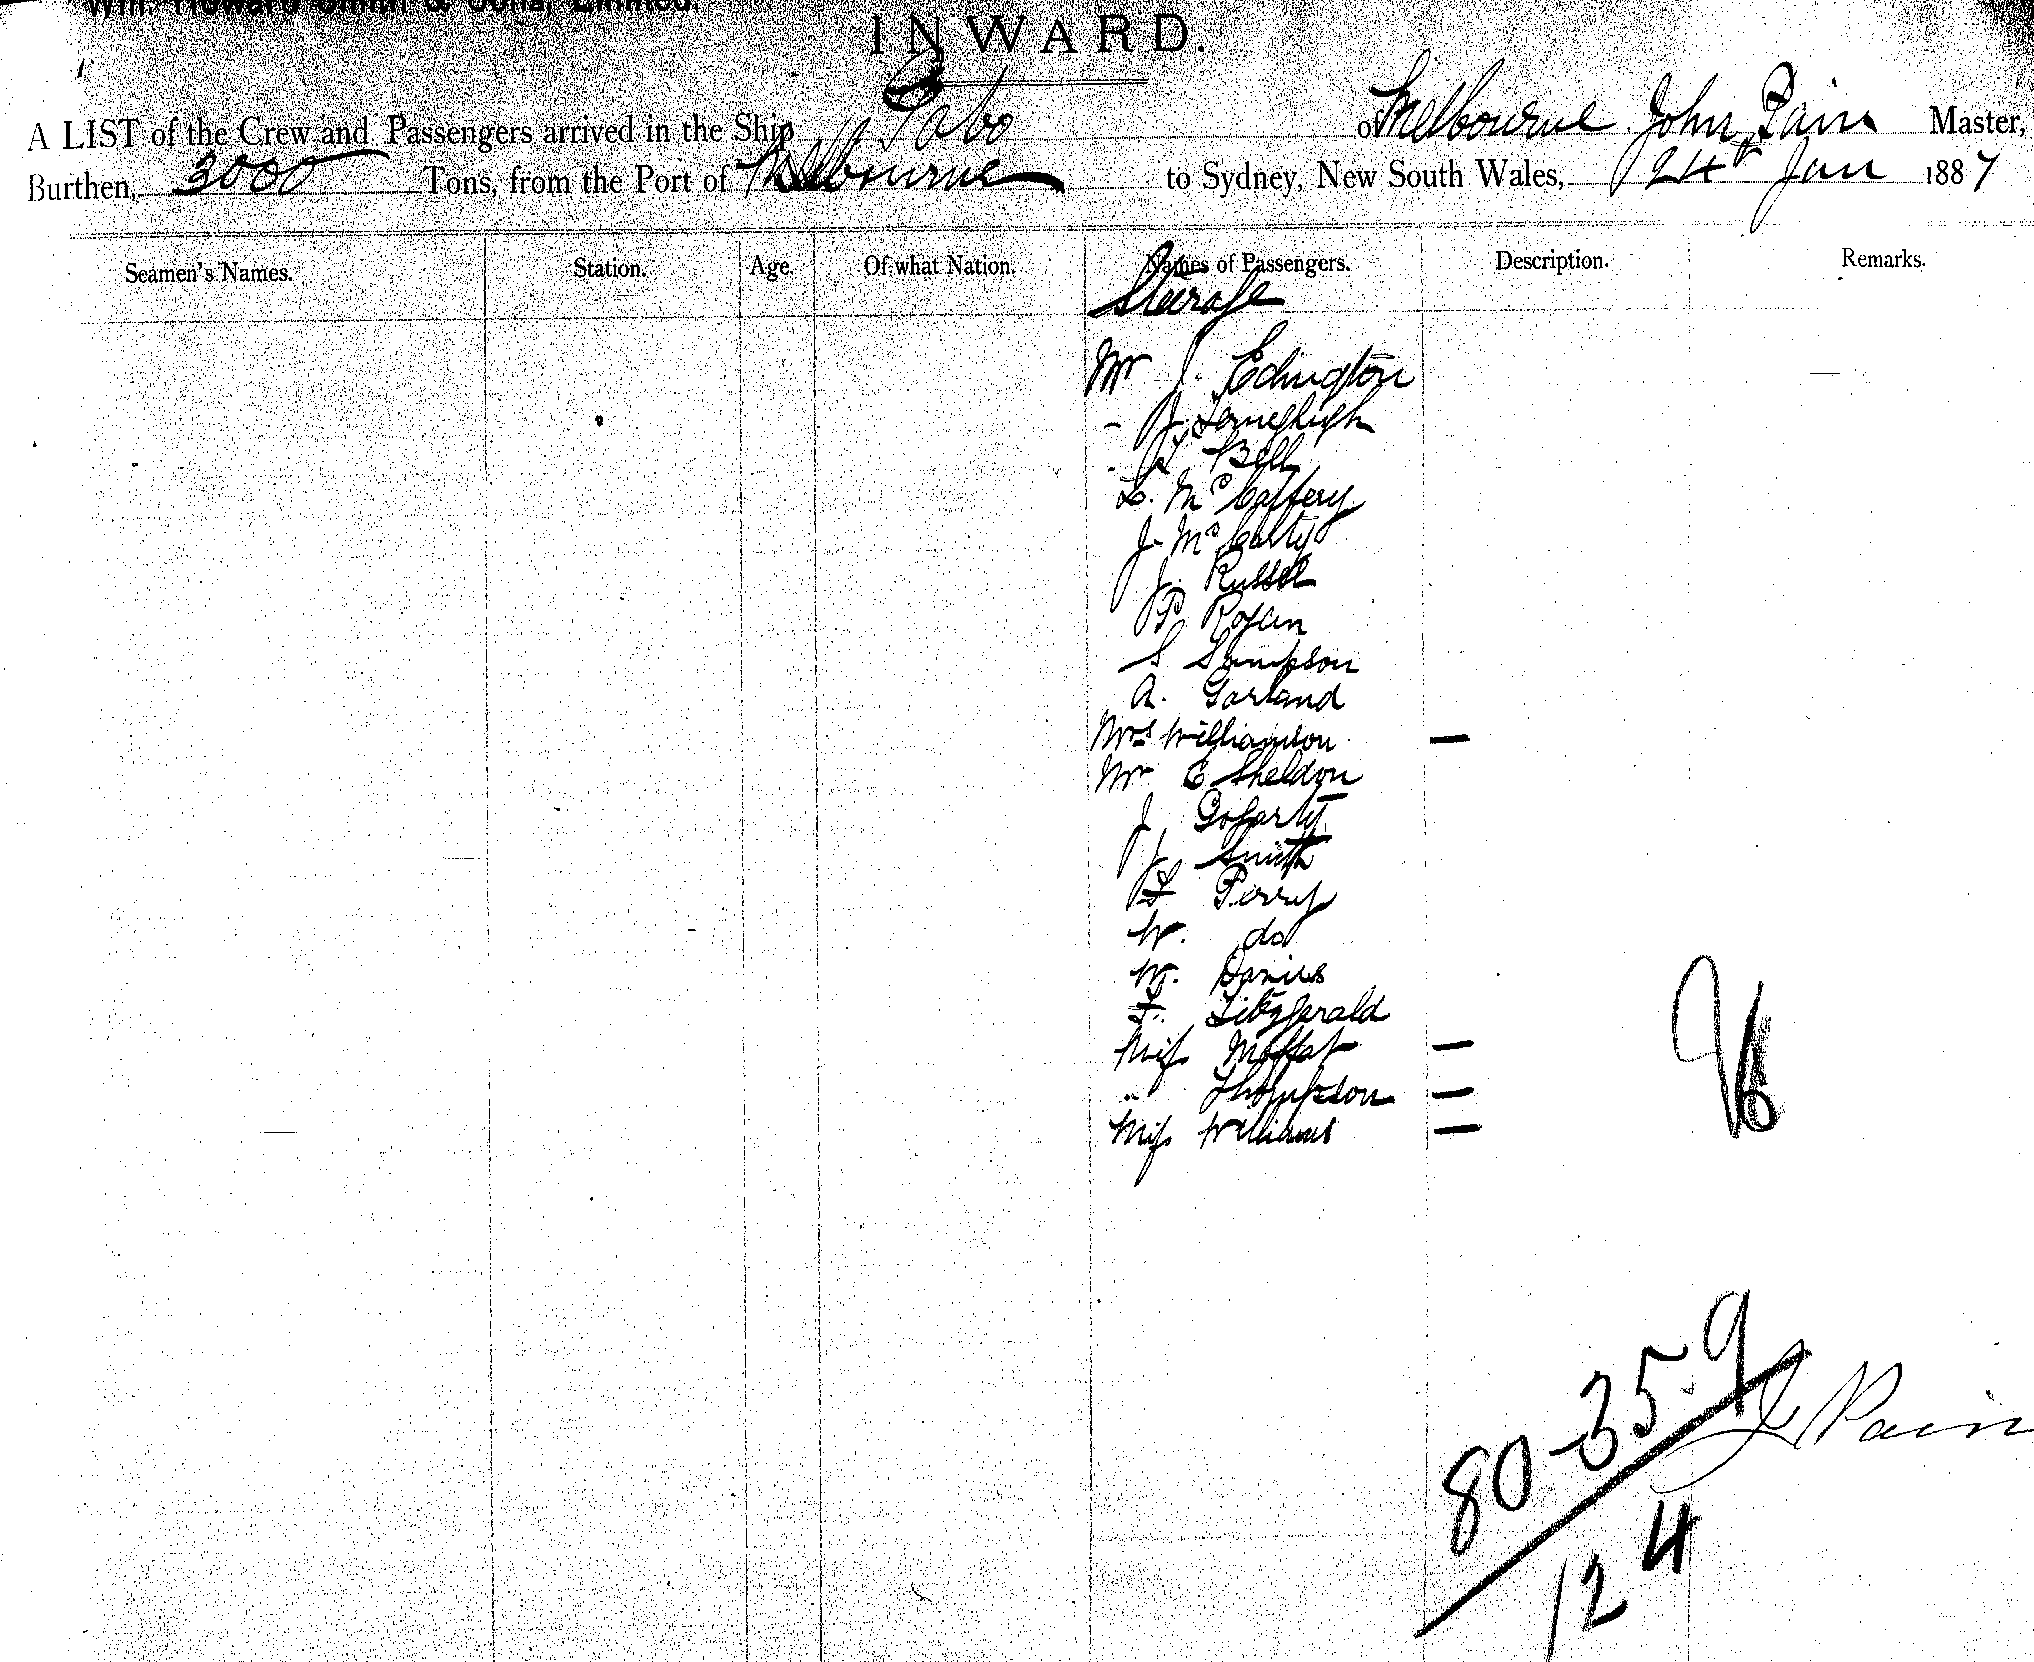 Wm. Howard Smith & Sons, Limited.
INWARD.
A LIST of the Crew and Passengers arrived in the Ship Gabo of Melbourne John Pain Master,
Burthen, 3000 Tons, from the Port of Melbourne to Sydney, New South Wales, 24th Jan 1887
Seamen's Names. Station. Age. Of what Nation. Names of Passengers. Description. Remarks.
Steerage
Mr J. Edington
- J.
- Bell
L. McCaffery
J. McCarty
J. Russell
P. Rogan
S Simpson
A. Garland
Mrs Williamson —
Mr E Sheldon
J. Gogarty
J. Smith
Perry
W. do
W. Davies
F. Fitzgerald
Miss Moffat —
" Thompson —
Miss Williams —
80-35-9
J Pain
124